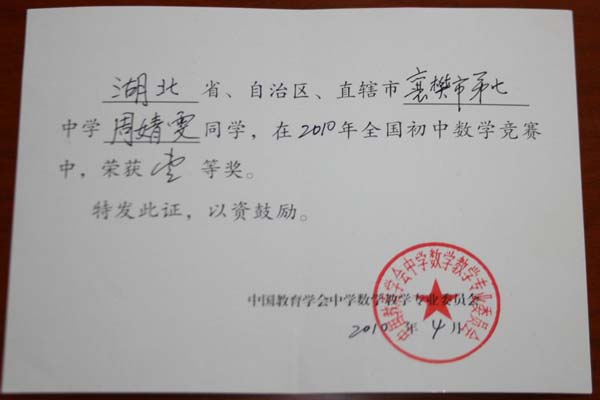 湖北省、自治区、直辖市襄樊市第七
中学周婧雯同学，在2010年全国初中数学竞赛
中，荣获壹等奖。
特发此证，以资鼓励。
中国教育学会中学数学教学专业委员会
2010年4月
中国教育学会中学数学教学专业委员会